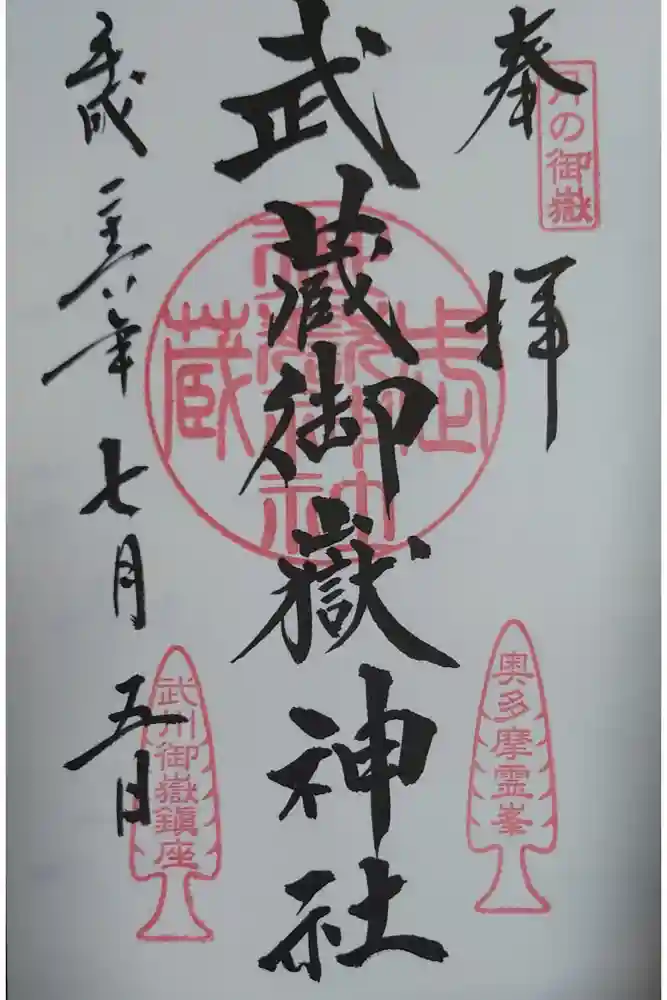 奉拝
月の御嶽
武蔵御嶽神社
武蔵
御嶽神社
奥多摩霊峯
平成二十六年七月五日
武州御嶽鎮座